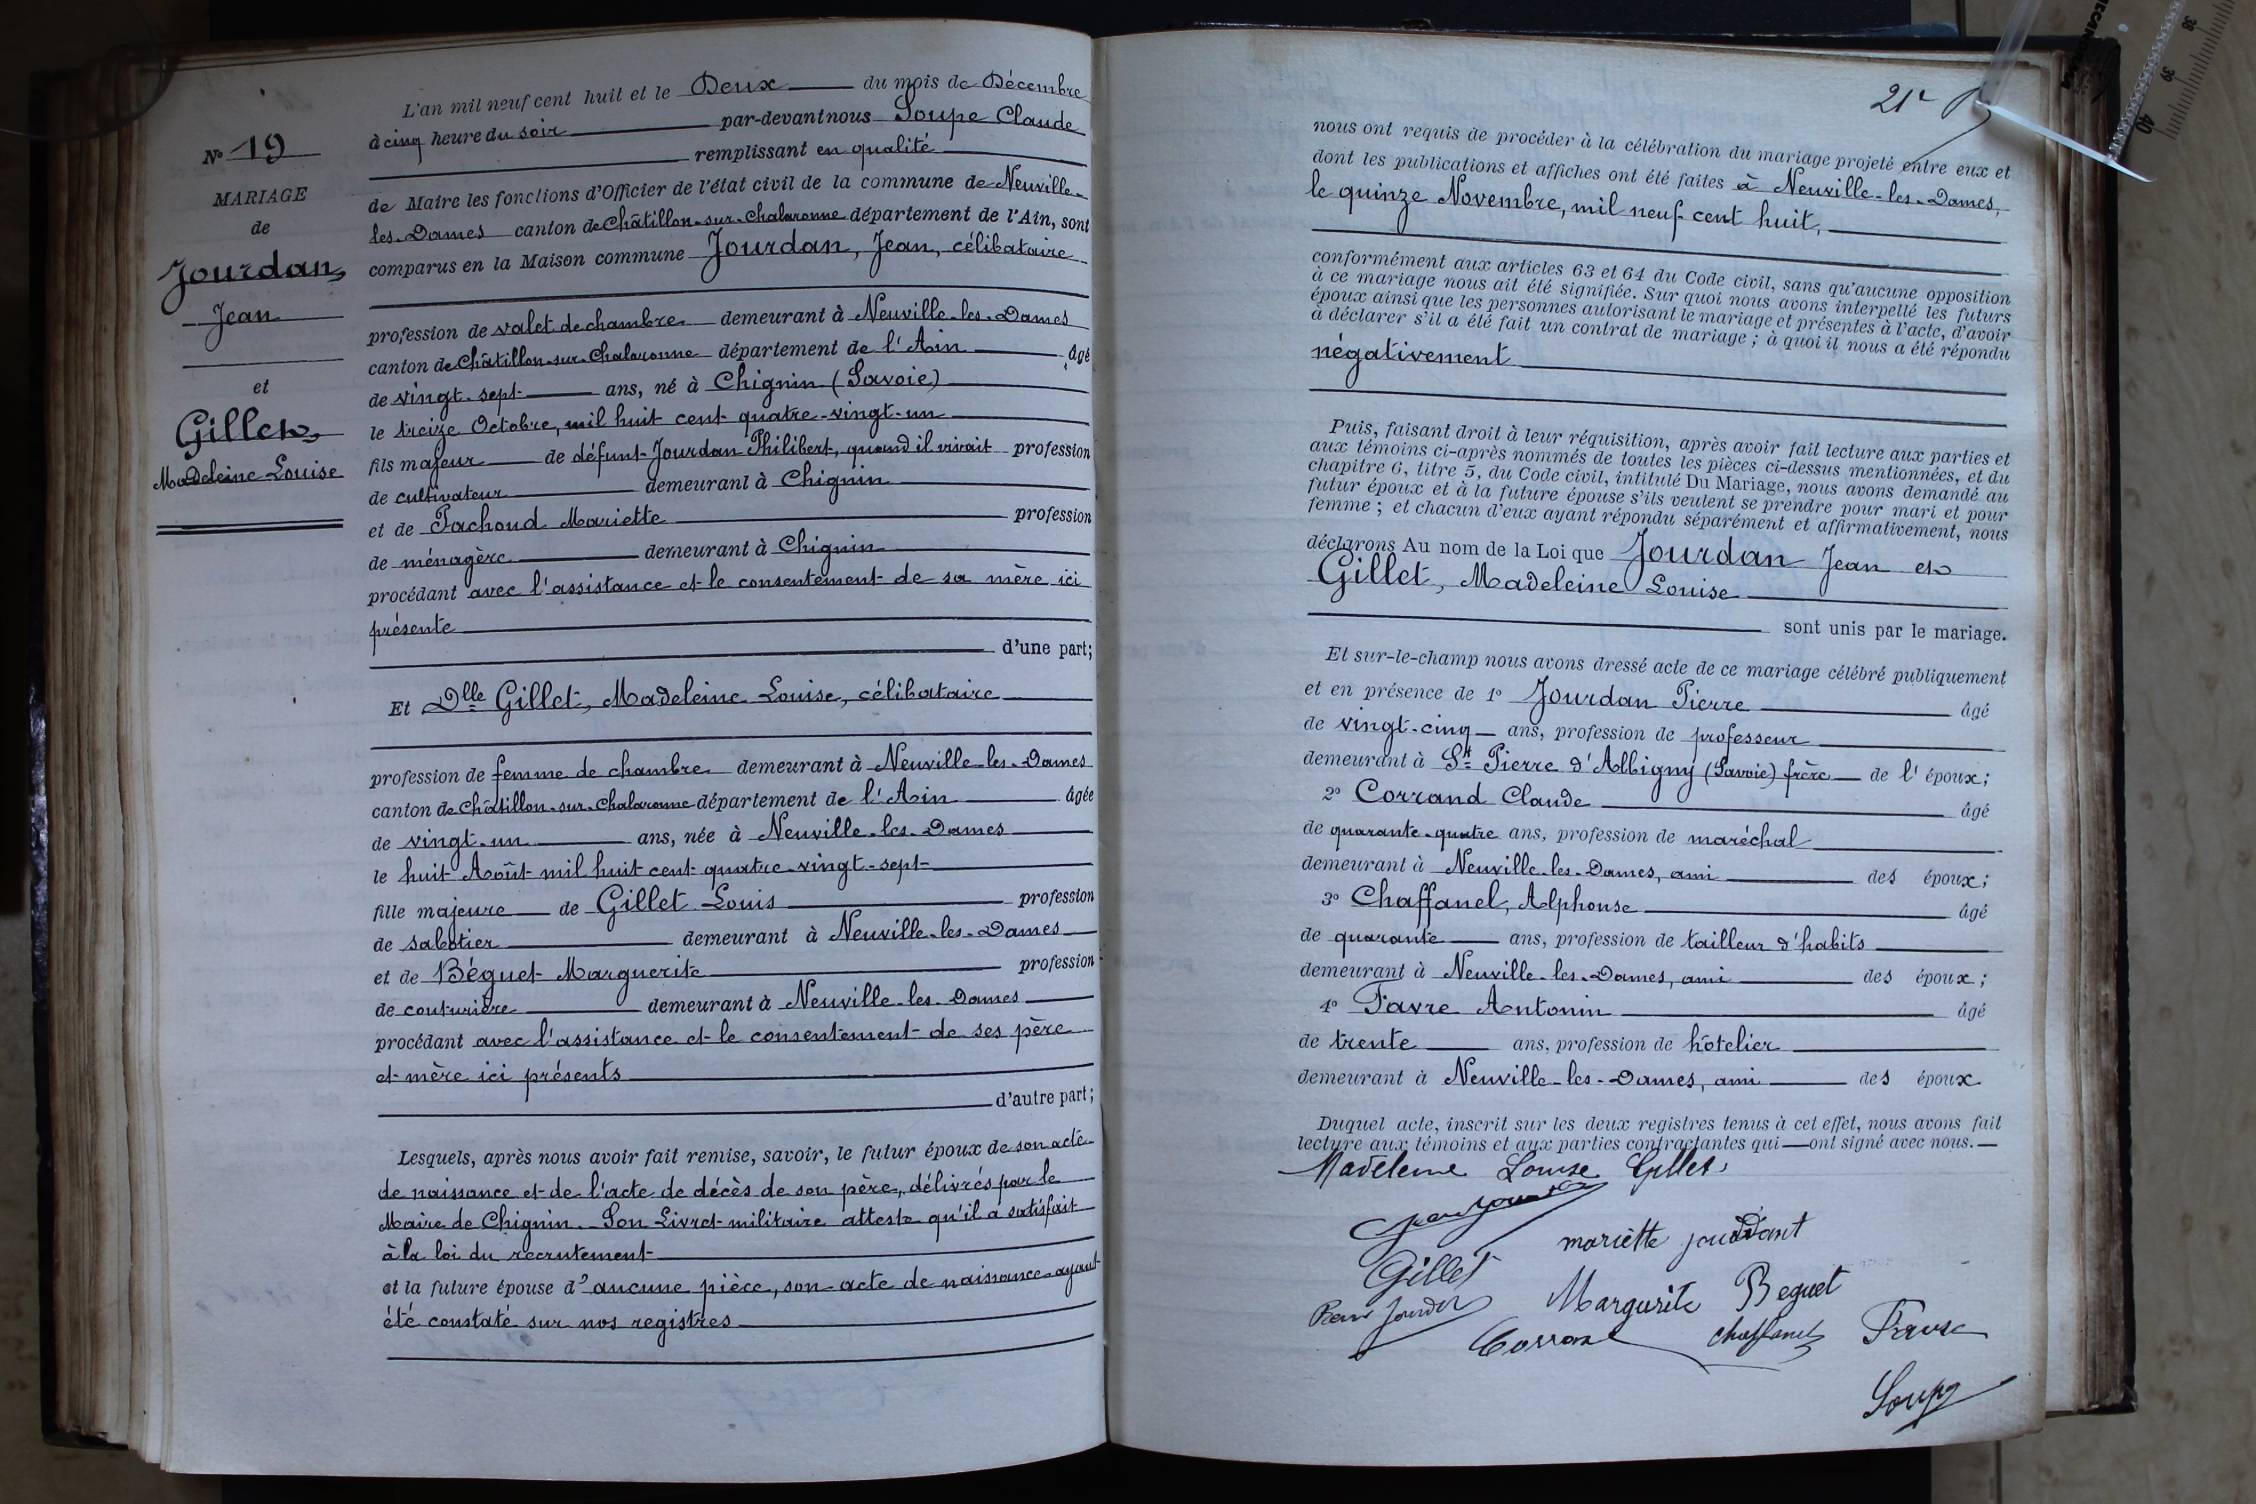 N° 19
MARIAGE
de
Jourdan,
Jean
et
Gillet,
Madeleine Louise
L'an mil neuf cent huit et le Deux du mois de Décembre
à cinq heure du soir par-devant nous Soupe Claude
remplissant en qualité
de Maire les fonctions d'Officier de l'état civil de la commune de Neuville-
les-Dames canton de Châtillon-sur-Chalaronne département de l'Ain, sont
comparus en la Maison commune Jourdan, Jean, célibataire
profession de valet de chambre demeurant à Neuville-les-Dames
canton de Châtillon-sur-Chalaronne département de l'Ain âgé
de vingt-sept ans, né à Chignin (Savoie)
le treize Octobre, mil huit cent quatre-vingt-un
fils majeur de défunt Jourdan Philibert, quand il vivait profession
de cultivateur demeurant à Chignin
et de Pachoud Mariette profession
de ménagère demeurant à Chignin
procédant avec l'assistance et le consentement de sa mère ici
présente
d'une part;
Et Dlle Gillet, Madeleine Louise, célibataire
profession de femme de chambre demeurant à Neuville-les-Dames
canton de Châtillon-sur-Chalaronne département de l'Ain âgée
de vingt-un ans, née à Neuville-les-Dames
le huit Août mil huit cent quatre-vingt-sept
fille majeure de Gillet Louis profession
de sabotier demeurant à Neuville-les-Dames
et de Béguet Marguerite profession
de couturière demeurant à Neuville-les-Dames
procédant avec l'assistance et le consentement de ses père
et mère ici présents
d'autre part;
Lesquels, après nous avoir fait remise, savoir, le futur époux de son acte
de naissance et de l'acte de décès de son père, délivrés par le
Maire de Chignin. Son Livret militaire atteste qu'il a satisfait
à la loi du recrutement
et la future épouse d'aucune pièce, son acte de naissance ayant
été constaté sur nos registres
21e
nous ont requis de procéder à la célébration du mariage projeté entre eux et
dont les publications et affiches ont été faites à Neuville-les-Dames,
le quinze Novembre, mil neuf cent huit,
conformément aux articles 63 et 64 du Code civil, sans qu'aucune opposition
à ce mariage nous ait été signifiée. Sur quoi nous avons interpellé les futurs
époux ainsi que les personnes autorisant le mariage et présentes à l'acte, d'avoir
à déclarer s'il a été fait un contrat de mariage; à quoi il nous a été répondu
négativement
Puis, faisant droit à leur réquisition, après avoir fait lecture aux parties et
aux témoins ci-après nommés de toutes les pièces ci-dessus mentionnées, et du
chapitre 6, titre 5, du Code civil, intitulé Du Mariage, nous avons demandé au
futur époux et à la future épouse s'ils veulent se prendre pour mari et pour
femme; et chacun d'eux ayant répondu séparément et affirmativement, nous
déclarons Au nom de la Loi que Jourdan Jean et
Gillet, Madeleine Louise
sont unis par le mariage.
Et sur-le-champ nous avons dressé acte de ce mariage célébré publiquement
et en présence de 1° Jourdan Pierre âgé
de vingt-cinq ans, profession de professeur
demeurant à St Pierre d'Albigny (Savoie) frère de l'époux;
2° Corrand Claude âgé
de quarante-quatre ans, profession de maréchal
demeurant à Neuville-les-Dames, ami des époux;
3° Chaffanel, Alphonse âgé
de quarante ans, profession de tailleur d'habits
demeurant à Neuville-les-Dames, ami des époux;
4° Favre Antonin âgé
de trente ans, profession de hôtelier
demeurant à Neuville-les-Dames, ami des époux
Duquel acte, inscrit sur les deux registres tenus à cet effet, nous avons fait
lecture aux témoins et aux parties contractantes qui ont signé avec nous.
Madeleine Louise Gillet
Jean Jourdan
mariette jourdant
Gillet
Margurite Beguet
Pierre Jourdan
Corrand
Chaffanel
Favre
Soupe
38
39
40